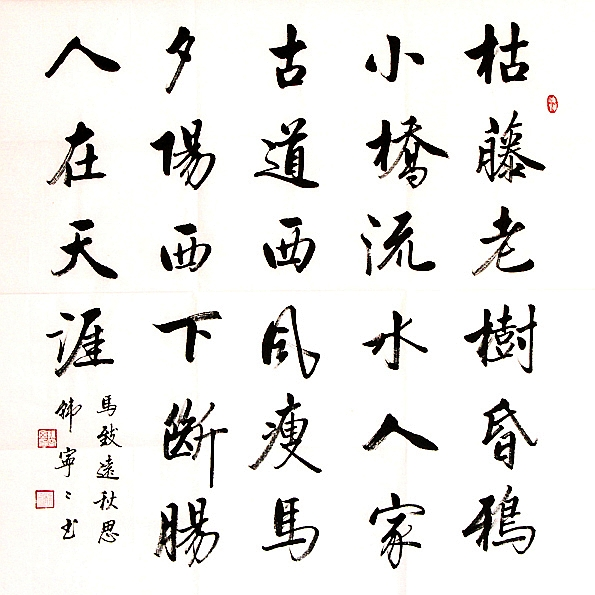 枯藤老樹昏鴉
小橋流水人家
古道西風瘦馬
夕陽西下斷腸
人在天涯
馬致遠秋思
韓寧寧書